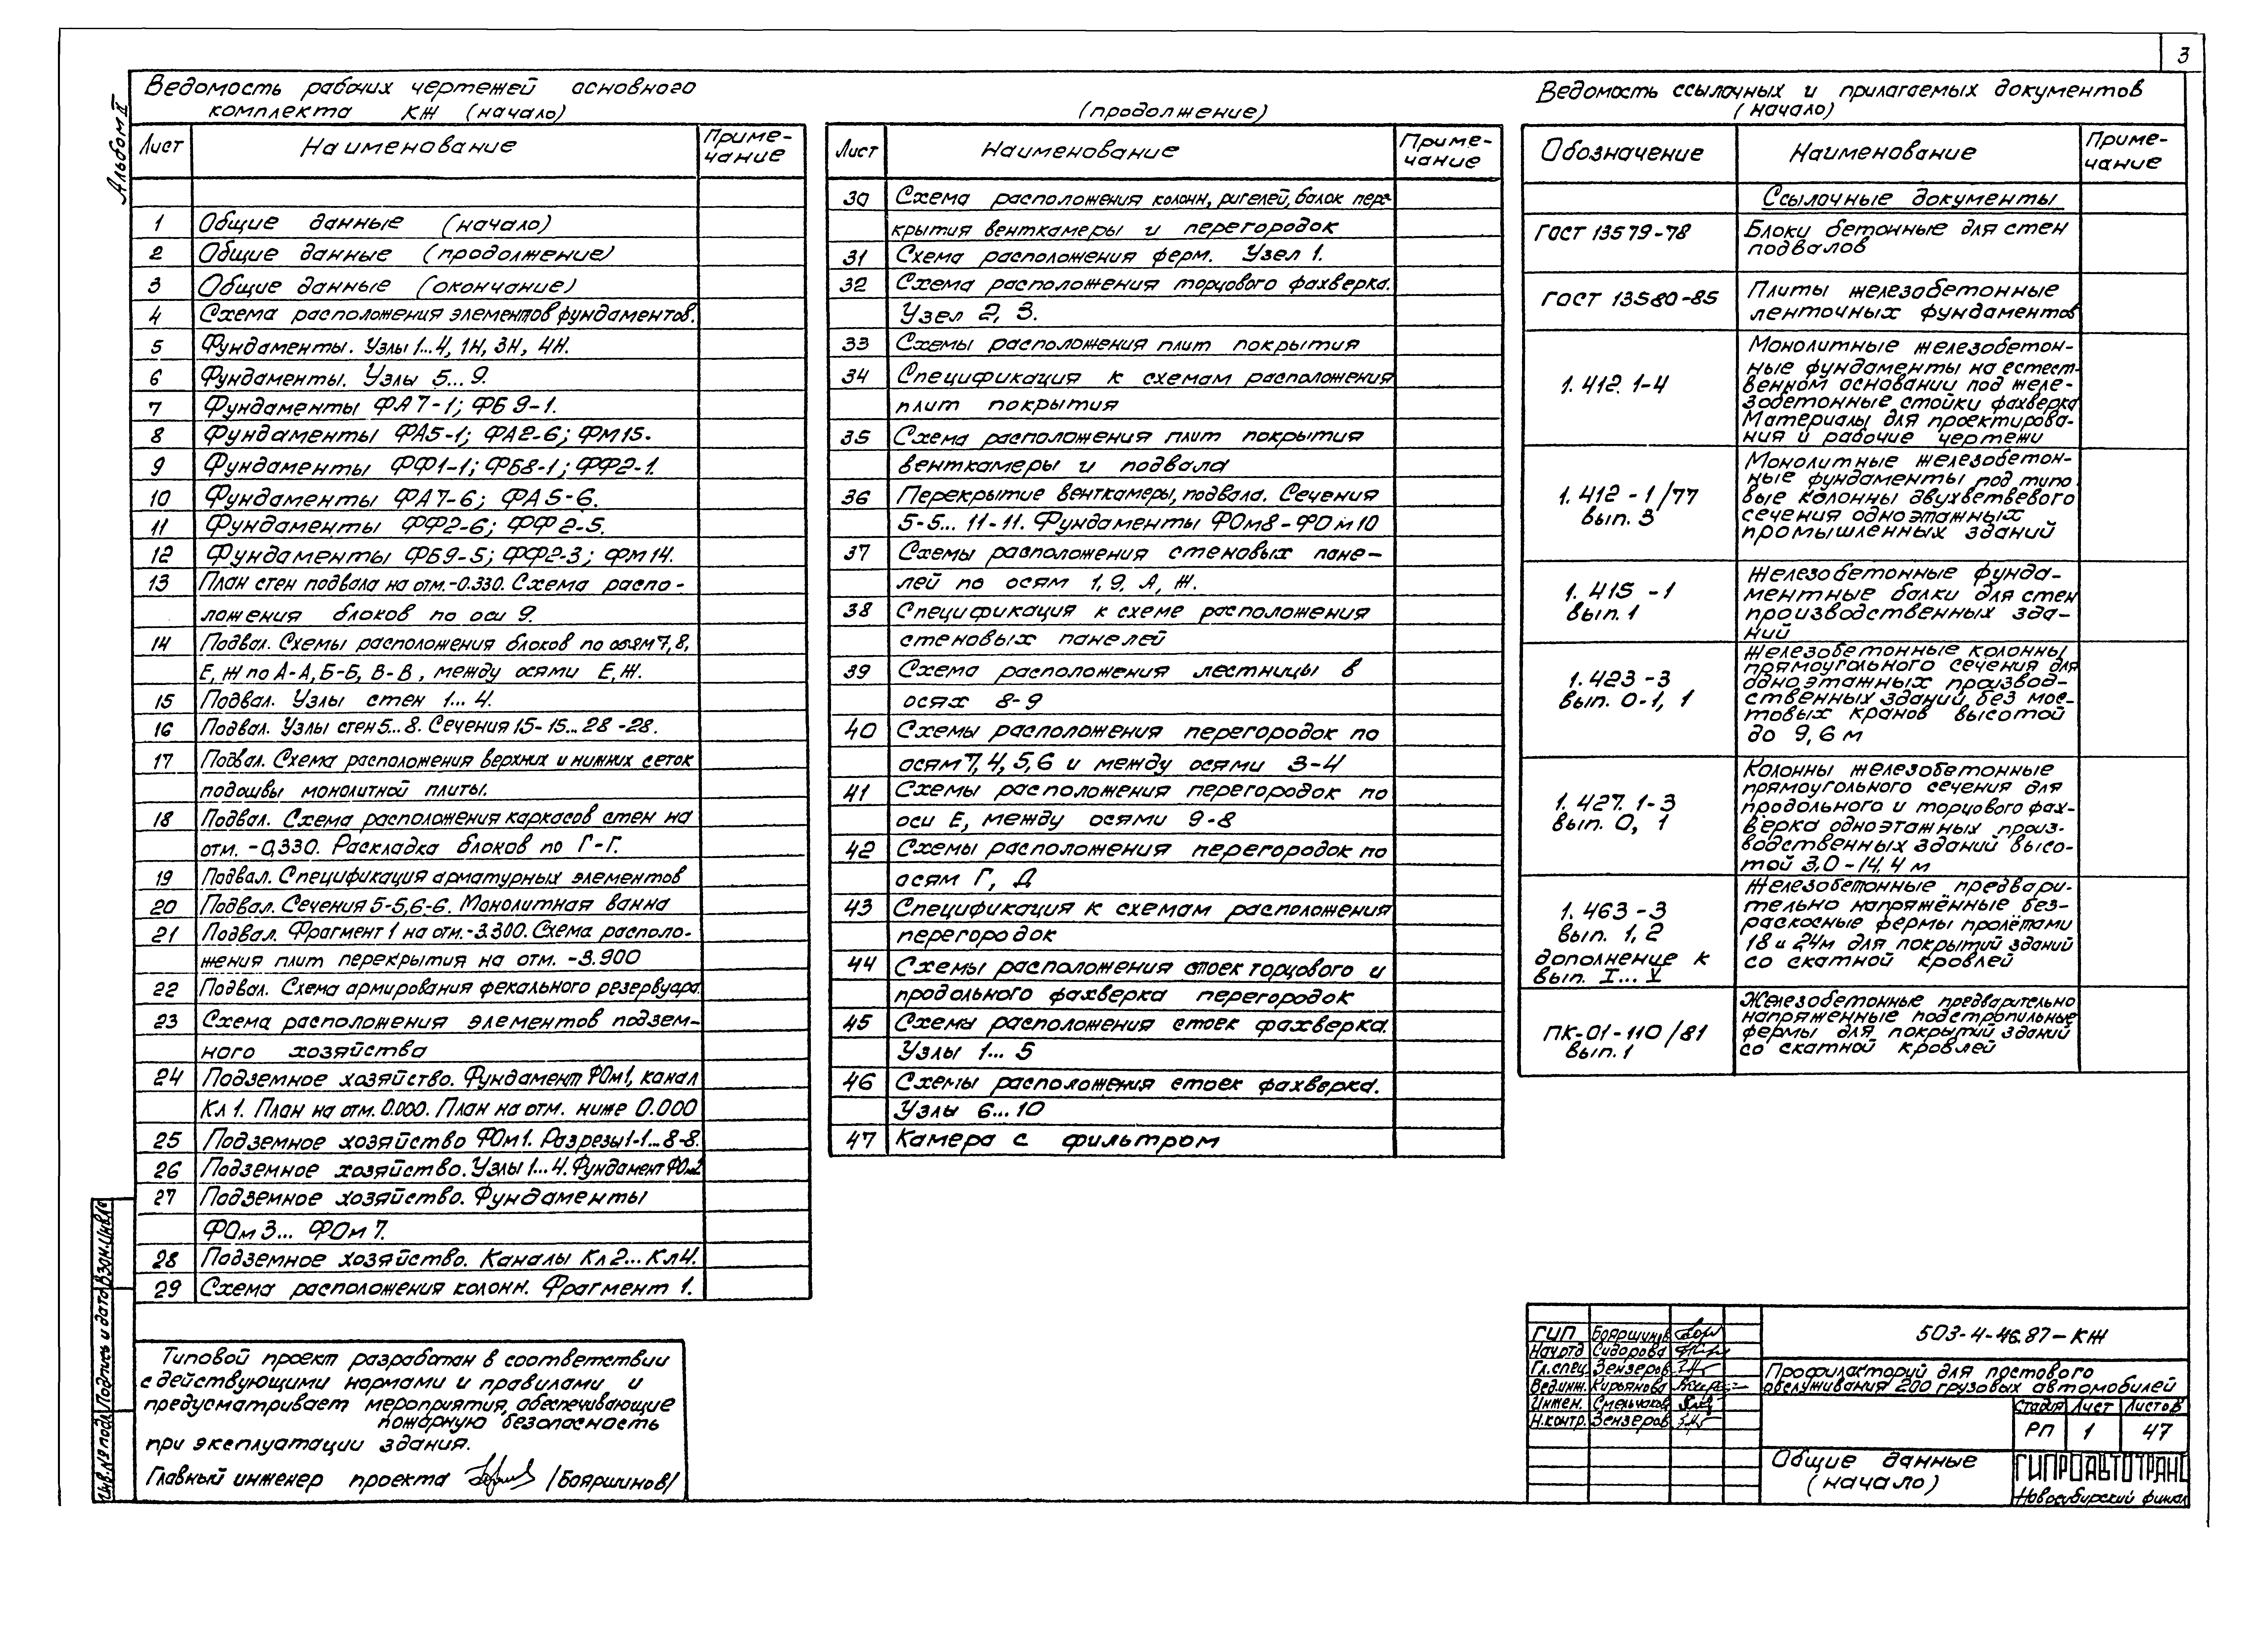 3
Альбом II
Ведомость рабочих чертежей основного
комплекта КЖ (начало)
Лист Наименование Приме-
чание
1 Общие данные (начало)
2 Общие данные (продолжение)
3 Общие данные (окончание)
4 Схема расположения элементов фундаментов.
5 Фундаменты. Узлы 1...4, 1Н, 3Н, 4Н.
6 Фундаменты. Узлы 5...9.
7 Фундаменты ФА7-1; ФБ9-1.
8 Фундаменты ФА5-1; ФА2-6; ФМ15.
9 Фундаменты ФФ1-1; ФБ8-1; ФФ2-1.
10 Фундаменты ФА7-6; ФА5-6.
11 Фундаменты ФФ2-6; ФФ2-5.
12 Фундаменты ФБ9-5; ФФ2-3; ФМ14.
13 План стен подвала на отм.-0.330. Схема распо-
ложения блоков по оси 9.
14 Подвал. Схемы расположения блоков по осям 7, 8,
Е, Ж по А-А, Б-Б, В-В, между осями Е, Ж.
15 Подвал. Узлы стен 1...4.
16 Подвал. Узлы стен 5...8. Сечения 15-15...28-28.
17 Подвал. Схема расположения верхних и нижних сеток
подошвы монолитной плиты.
18 Подвал. Схема расположения каркасов стен на
отм. -0,330. Раскладка блоков по Г-Г.
19 Подвал. Спецификация арматурных элементов
20 Подвал. Сечения 5-5,6-6. Монолитная ванна
21 Подвал. Фрагмент 1 на отм.-3.300. Схема располо-
жения плит перекрытия на отм. -3.900
22 Подвал. Схема армирования фекального резервуара.
23 Схема расположения элементов подзем-
ного хозяйства
24 Подземное хозяйство. Фундамент ФОм1, канал
Кл 1. План на отм. 0.000. План на отм. ниже 0.000
25 Подземное хозяйство ФОм1. Разрезы 1-1...8-8.
26 Подземное хозяйство. Узлы 1...4. Фундамент ФОм2
27 Подземное хозяйство. Фундаменты
ФОм 3... ФОм 7.
28 Подземное хозяйство. Каналы Кл2...Кл4.
29 Схема расположения колонн. Фрагмент 1.
(продолжение)
Лист Наименование Приме-
чание
30 Схема расположения колонн, ригелей, балок пере-
крытия венткамеры и перегородок
31 Схема расположения ферм. Узел 1.
32 Схема расположения торцового фахверка.
Узел 2, 3.
33 Схемы расположения плит покрытия
34 Спецификация к схемам расположения
плит покрытия
35 Схема расположения плит покрытия
венткамеры и подвала
36 Перекрытие венткамеры, подвала. Сечения
5-5... 11-11. Фундаменты ФОм8-ФОм10
37 Схемы расположения стеновых пане-
лей по осям 1, 9, А, Ж.
38 Спецификация к схеме расположения
стеновых панелей
39 Схема расположения лестницы в
осях 8-9
40 Схемы расположения перегородок по
осям 7, 4, 5, 6 и между осями 3-4
41 Схемы расположения перегородок по
оси Е, между осями 9-8
42 Схемы расположения перегородок по
осям Г, Д
43 Спецификация к схемам расположения
перегородок
44 Схемы расположения стоек торцового и
продольного фахверка перегородок
45 Схемы расположения стоек фахверка.
Узлы 1... 5
46 Схемы расположения стоек фахверка.
Узлы 6...10
47 Камера с фильтром
Ведомость ссылочных и прилагаемых документов
(начало)
Обозначение Наименование Приме-
чание
Ссылочные документы
ГОСТ 13579-78 Блоки бетонные для стен
подвалов
ГОСТ 13580-85 Плиты железобетонные
ленточных фундаментов
1.412.1-4 Монолитные железобетон-
ные фундаменты на естест-
венном основании под желе-
зобетонные стойки фахверка
Материалы для проектирова-
ния и рабочие чертежи
1.412-1/77
вып. 3 Монолитные железобетон-
ные фундаменты под типо
вые колонны двухветвевого
сечения одноэтажных
промышленных зданий
1.415-1
вып. 1 Железобетонные фунда-
ментные балки для стен
производственных зда-
ний
1.423-3
вып. 0-1, 1 Железобетонные колонны
прямоугольного сечения для
одноэтажных производ-
ственных зданий без мос-
товых кранов высотой
до 9,6 м
1.427.1-3
вып. 0, 1 Колонны железобетонные
прямоугольного сечения для
продольного и торцового фах-
верка одноэтажных произ-
водственных зданий высо-
той 3,0-14,4 м
1.463-3
вып. 1, 2
дополнение к
вып. I...V Железобетонные предвари-
тельно напряжённые без-
раскосные фермы пролётами
18 и 24м для покрытий зданий
со скатной кровлей
ПК-01-110/81
вып. 1 Железобетонные предварительно
напряженные подстропильные
фермы для покрытий зданий
со скатной кровлей
Типовой проект разработан в соответствии
с действующими нормами и правилами и
предусматривает мероприятия, обеспечивающие
пожарную безопасность
при эксплуатации здания.
Главный инженер проекта /Бояршинов/
Инв.№ подл. Подпись и дата Взам.инв.№
ГИП Бояршинов
Нач.отд Сидорова
Гл.спец. Зензеров
Вед.инж. Кирьянова
Инжен. Смельчаков
Н.контр. Зензеров
503-4-46.87-КЖ
Профилакторий для постового
обслуживания 200 грузовых автомобилей
Стадия Лист Листов
РП 1 47
Общие данные
(начало)
ГИПРОАВТОТРАНС
Новосибирский филиал